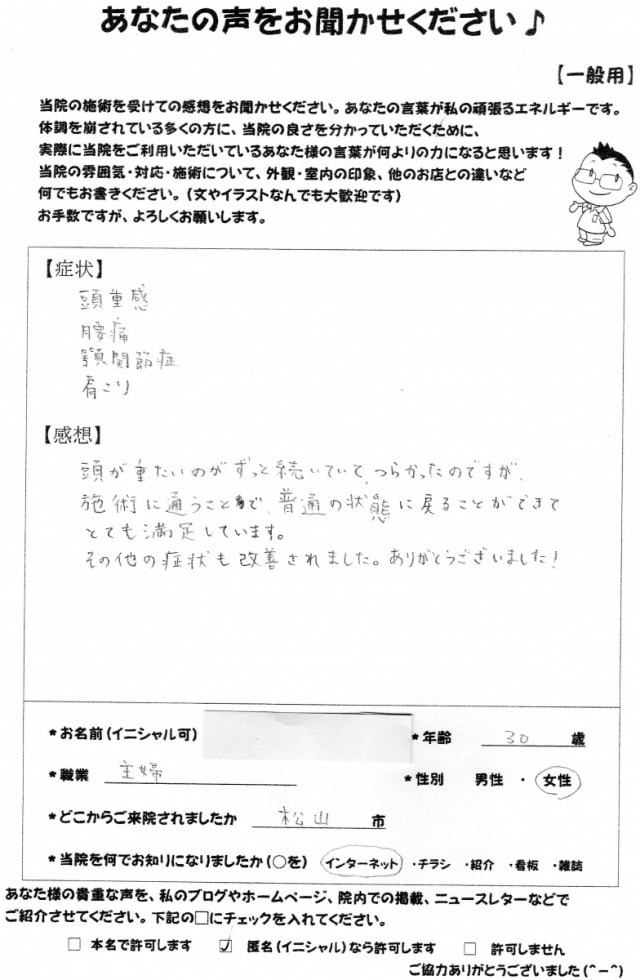 あなたの声をお聞かせください♪
【一般用】
当院の施術を受けての感想をお聞かせください。あなたの言葉が私の頑張るエネルギーです。
体調を崩されている多くの方に、当院の良さを分かっていただくために、
実際に当院をご利用いただいているあなた様の言葉が何よりの力になると思います！
当院の雰囲気・対応・施術について、外観・室内の印象、他のお店との違いなど
何でもお書きください。（文やイラストなんでも大歓迎です）
お手数ですが、よろしくお願いします。
【症状】
頭重感
腰痛
顎関節症
肩こり
【感想】
頭が重たいのがずっと続いていて、つらかったのですが、
施術に通うことで、普通の状態に戻ることができて
とても満足しています。
その他の症状も改善されました。ありがとうございました！
*お名前（イニシャル可） *年齢 30 歳
*職業 主婦 *性別 男性 ・ 女性
*どこからご来院されましたか 松山 市
*当院を何でお知りになりましたか（○を） インターネット ・チラシ ・紹介 ・看板 ・雑誌
あなた様の貴重な声を、私のブログやホームページ、院内での掲載、ニュースレターなどで
ご紹介させてください。下記の□にチェックを入れてください。
□ 本名で許可します ☑ 匿名（イニシャル）なら許可します □ 許可しません
ご協力ありがとうございました(^-^)